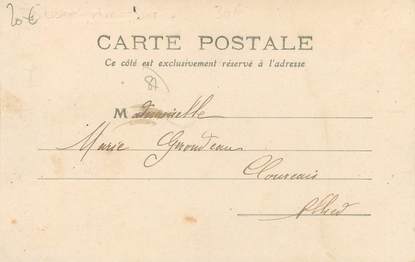 20€
CARTE POSTALE
Ce côté est exclusivement réservé à l'adresse
87
Mademoiselle
Marie Giraudeau